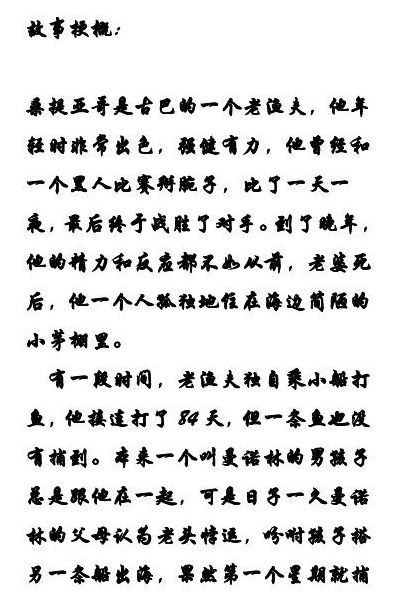 故事梗概：
桑提亚哥是古巴的一个老渔夫，他年
轻时非常出色，强健有力，他曾经和
一个黑人比赛掰腕子，比了一天一
夜，最后终于战胜了对手。到了晚年，
他的精力和反应都不如从前，老婆死
后，他一个人孤独地住在海边简陋的
小茅棚里。
有一段时间，老渔夫独自乘小船打
鱼，他接连打了84天，但一条鱼也没
有捕到。本来一个叫曼诺林的男孩子
总是跟他在一起，可是日子一久曼诺
林的父母认为老头悖运，吩咐孩子搭
另一条船出海，果然第一个星期就捕